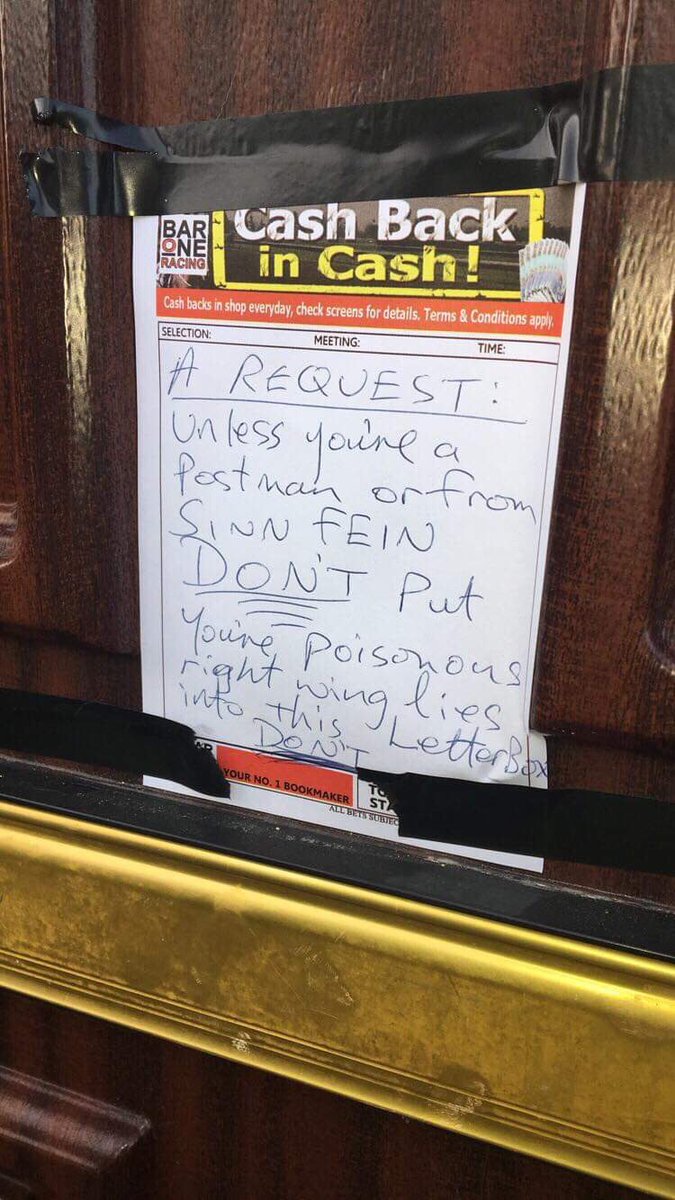 BAR
ONE
RACING
Cash Back
in Cash!
Cash backs in shop everyday, check screens for details. Terms & Conditions apply.
SELECTION: MEETING: TIME:
A REQUEST:
Unless you're a
Postman or from
SINN FEIN
DON'T Put
You're Poisonous
right wing lies
into this LetterBox
DON'T
YOUR NO. 1 BOOKMAKER
ALL BETS SUBJEC